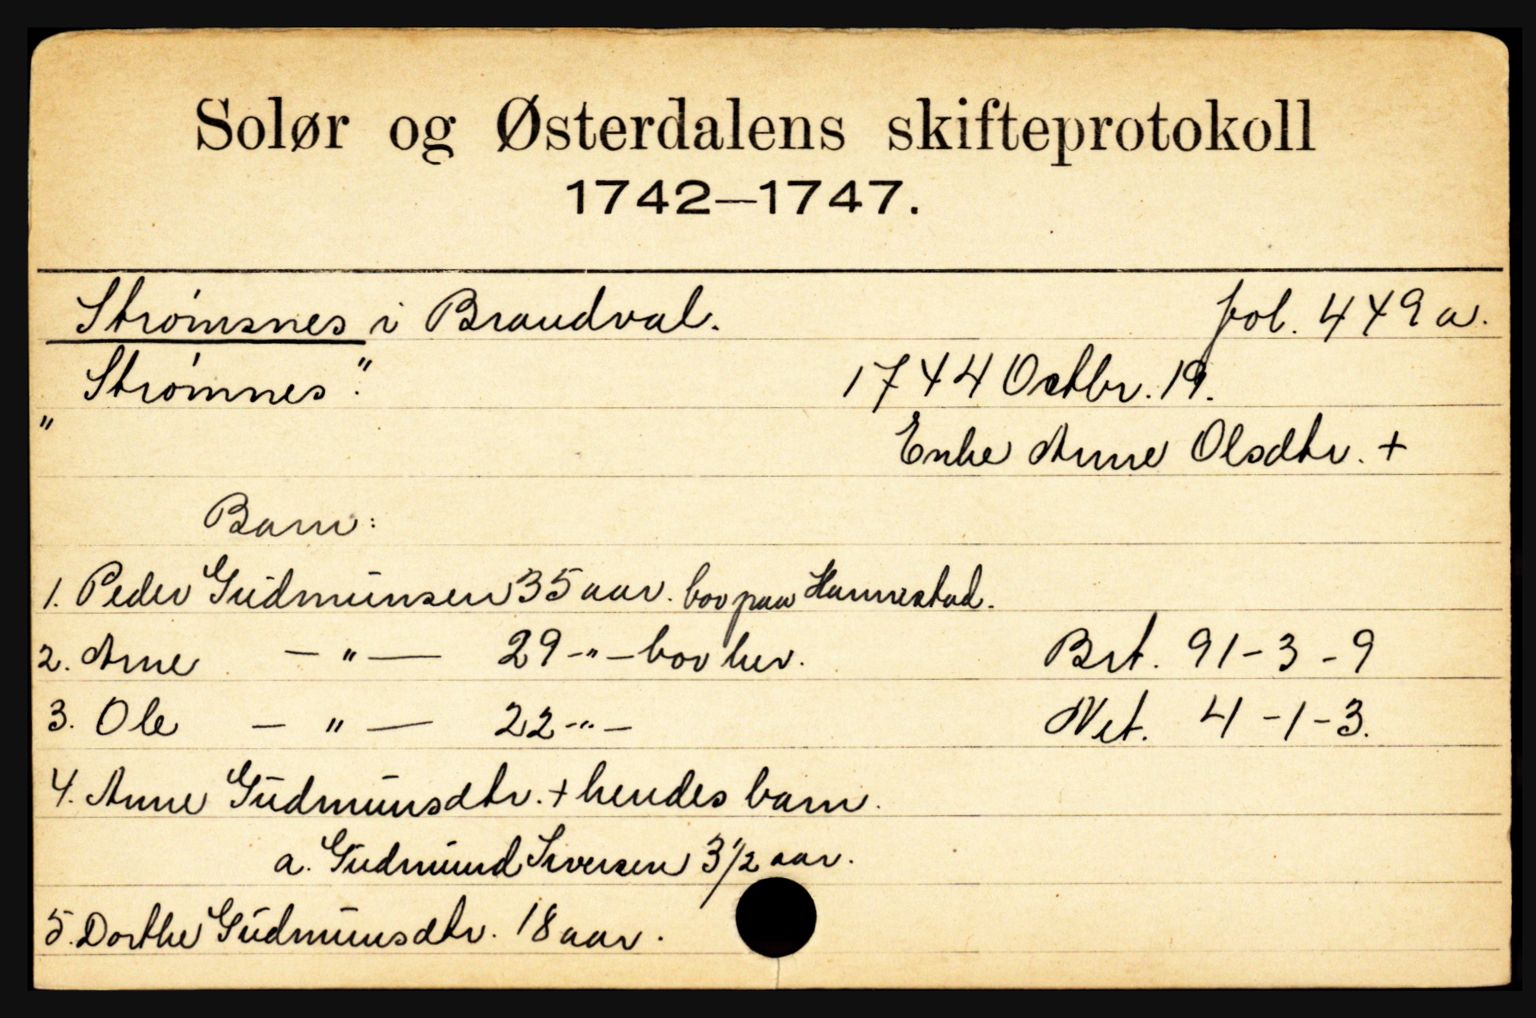 Solør og Østerdalens skifteprotokoll
1742—1747.
Strømsnes i Brandval. fol. 449 a.
"Strømnes". 1744 Octbr. 19.
Enke Anne Olsdtr. +
Barn:
1. Peder Gudmunsen 35 aar. bor paa Hannestad.
2. Arne — " — 29 - " - bor her. Brt. 91 - 3 - 9
3. Ole — " — 22 - " - Net. 4 - 1 - 3.
4. Anne Gudmunsdtr. + hendes barn.
a. Gudmund Iversen 3 1/2 aar.
5. Dorthe Gudmunsdtr. 18 aar.